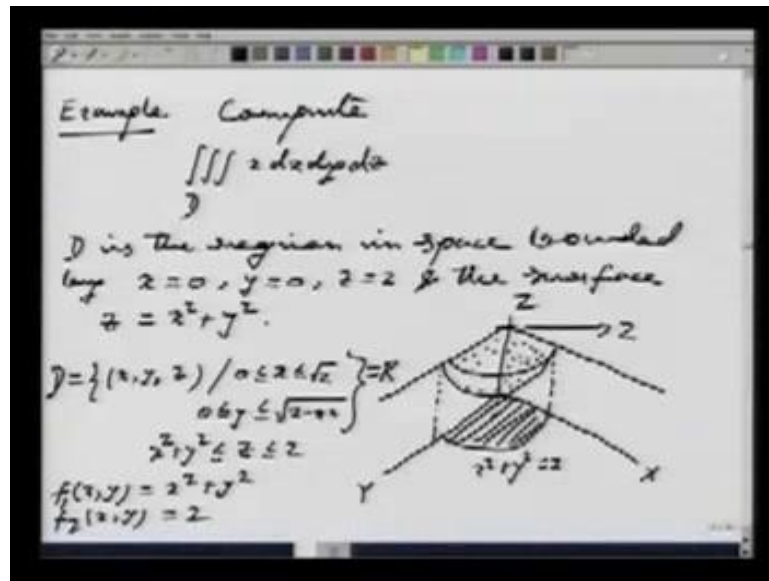 Example. Compute
∭ x dx dy dz
D
D is the region in space bounded
by x = 0, y = 0, z = 2 & the surface
z = x² + y².
Z
2
D = {(x, y, z) / 0 ≤ x ≤ √2
0 ≤ y ≤ √2-x² } = R
x² + y² ≤ z ≤ 2
x² + y² = 2
X
Y
f₁(x, y) = x² + y²
f₂(x, y) = 2